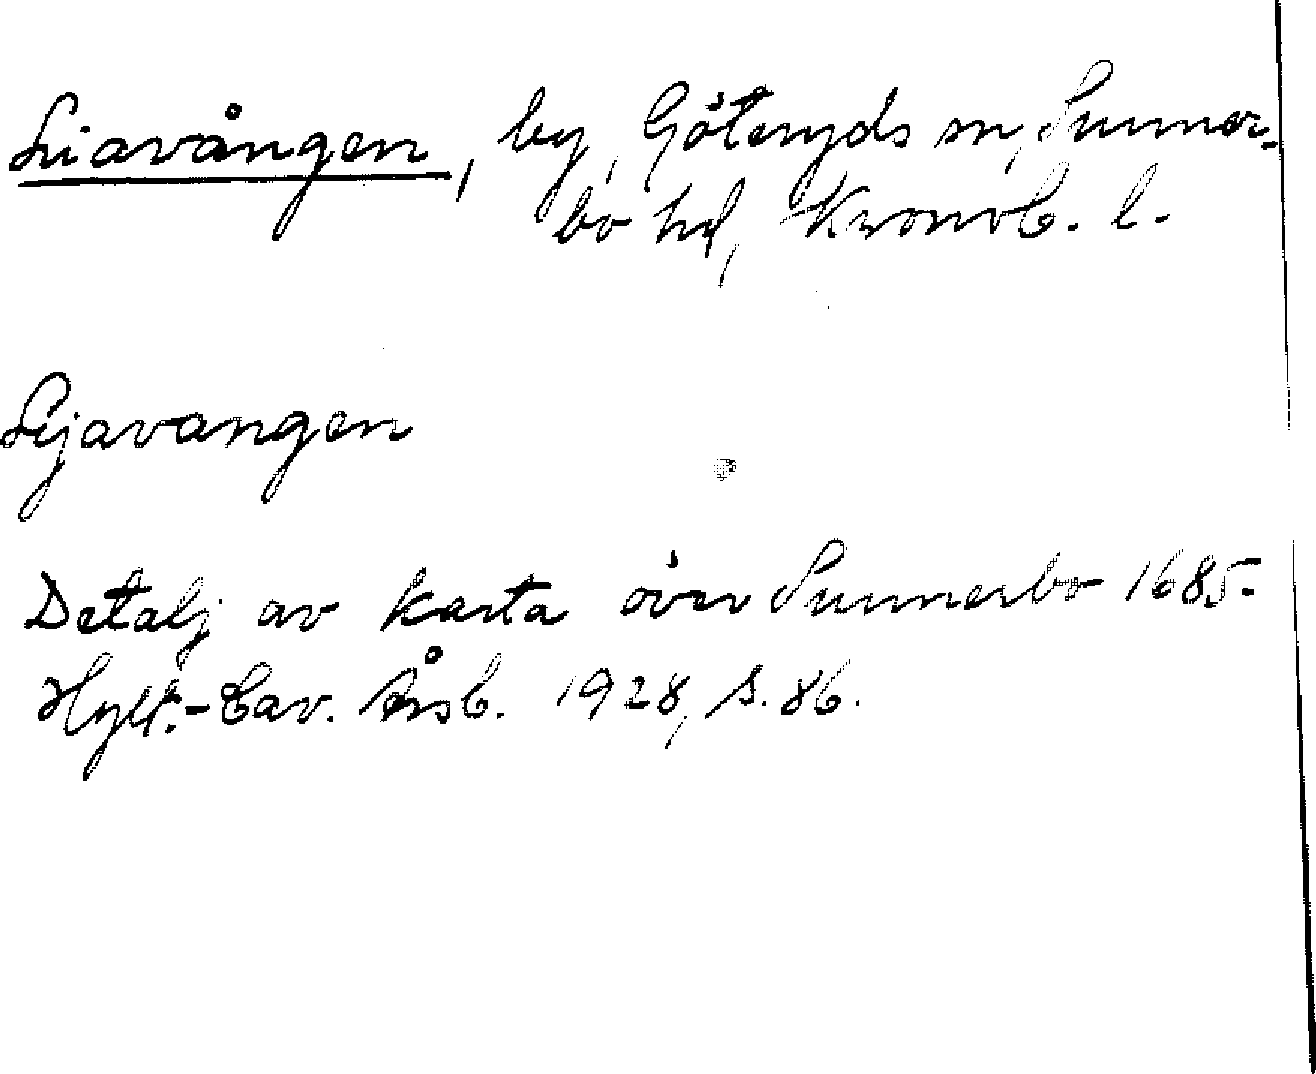 Liavången, by, Göteryds sn, Sunner-
bo hd, Kronob. l.
Lijavangen
Detalj av karta över Sunnerbo 1685.
Hylt.-Cav. Årsb. 1928, s. 86.